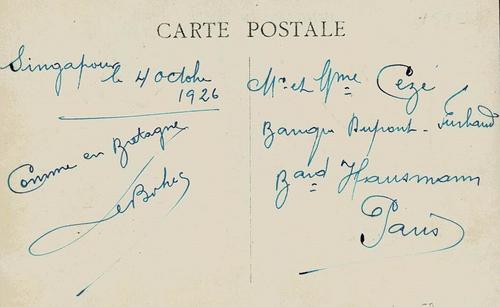 CARTE POSTALE
Singapour
le 4 octobre
1926
Comme en Bretagne
Mr. et Mme Cézé
Banque Dupont - Furland
Bard Hausmann
Paris